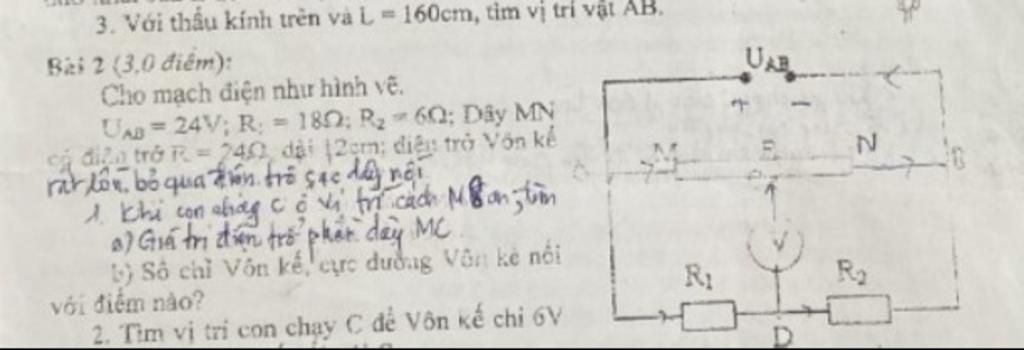 3. Với thấu kính trên và L = 160cm, tìm vị trí vật AB.
Bài 2 (3,0 điểm):
Cho mạch điện như hình vẽ.
U_AB = 24V; R₁ = 18Ω; R₂ = 6Ω; Dây MN
có điện trở R = 24Ω, dài 12cm; điện trở Vôn kế
rất lớn. bỏ qua điện trở các dây nối.
1. Khi con chạy C ở vị trí cách M 8cm, tìm
a) Giá trị điện trở phần dây MC
b) Số chỉ Vôn kế, cực dương Vôn kế nối
với điểm nào?
2. Tìm vị trí con chạy C để Vôn kế chỉ 6V
U_AB
+ −
M N
V
R₁ R₂
D